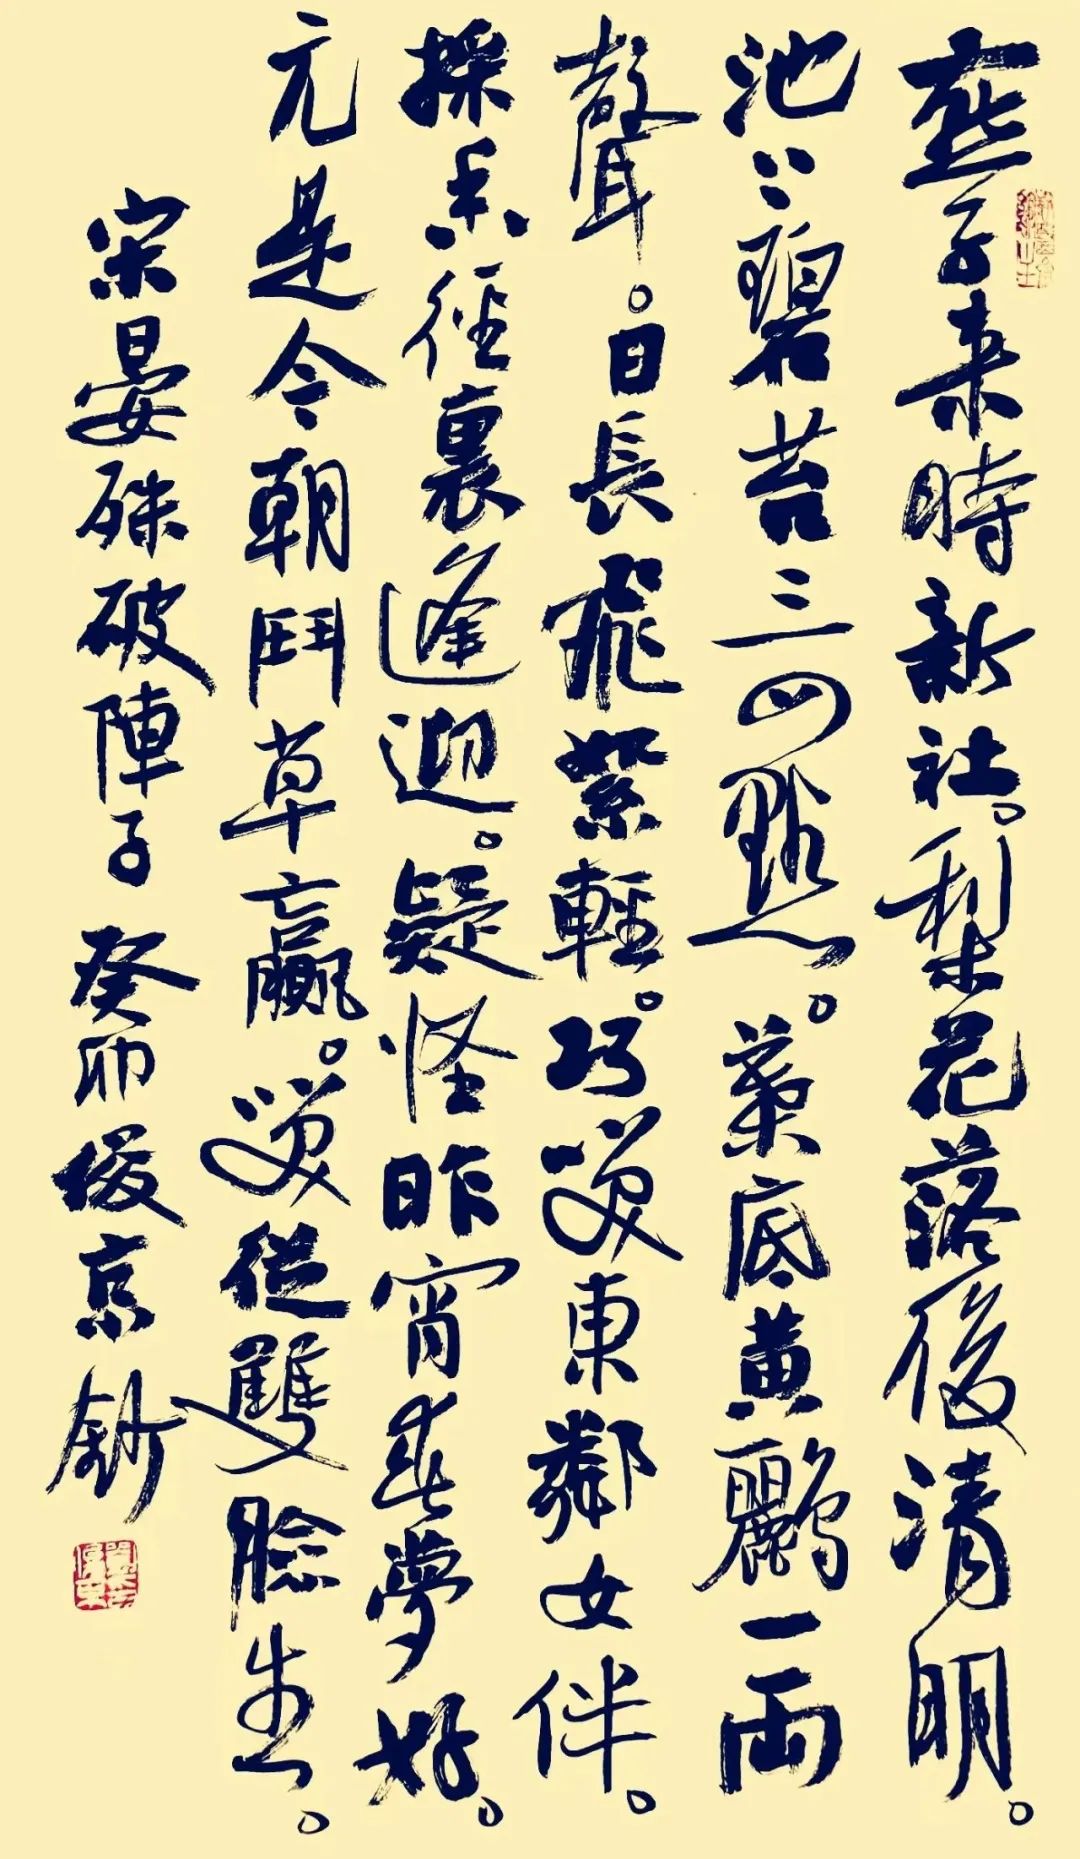 燕子来時新社。梨花落後清明。
池上碧苔三四點。葉底黄鸝一兩
聲。日長飛絮輕。巧笑東鄰女伴。
採香徑裏逢迎。疑怪昨宵春夢好。
元是今朝鬥草贏。笑從雙臉生。
宋晏殊破陣子 癸卯俊京鈔